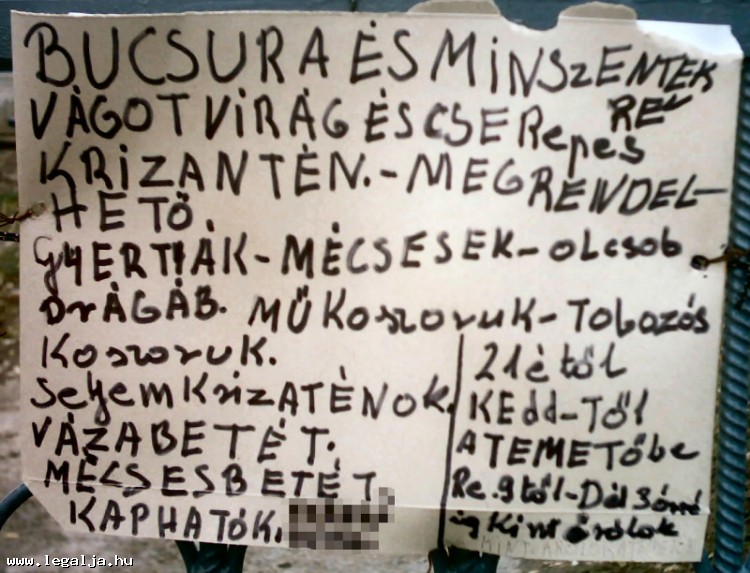 BUCSURA ÉS MINSZENTEK
RE
VÁGOTVIRÁG ÉS CSERepes
KRIZANTÉN.-MEGRENDEL-
HETŐ.
GYERTYÁK-MÉCSESEK-OLCSOB
DrÁGÁB. MŰKoszoruK-Tobozós
Koszoruk.
SelyemKrizATÉNOK.
VÁZABETÉT.
MÉCSESBETÉT
KAPHATÓK.
21étől
KEdd-Től
A TEMETŐbe
Re.9től-Dél
ig Kint árólok
www.legalja.hu